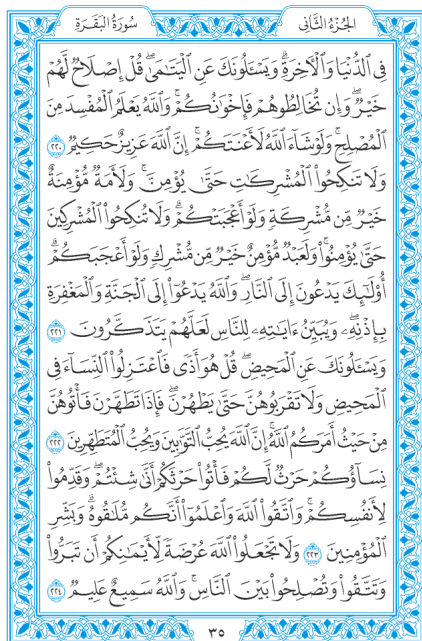 سُورَةُ البَقَرَةِ الجُزْءُ الثَّانِي
فِى ٱلدُّنْيَا وَٱلْأَخِرَةِۗ وَيَسْـَٔلُونَكَ عَنِ ٱلْيَتَـٰمَىٰۖ قُلْ إِصْلَاحٌ لَّهُمْ
خَيْرٌۖ وَإِن تُخَالِطُوهُمْ فَإِخْوَٰنُكُمْۚ وَٱللَّهُ يَعْلَمُ ٱلْمُفْسِدَ مِنَ
ٱلْمُصْلِحِۚ وَلَوْ شَآءَ ٱللَّهُ لَأَعْنَتَكُمْۚ إِنَّ ٱللَّهَ عَزِيزٌ حَكِيمٌ ٢٢٠
وَلَا تَنكِحُوا۟ ٱلْمُشْرِكَـٰتِ حَتَّىٰ يُؤْمِنَّۚ وَلَأَمَةٌ مُّؤْمِنَةٌ
خَيْرٌ مِّن مُّشْرِكَةٍ وَلَوْ أَعْجَبَتْكُمْۗ وَلَا تُنكِحُوا۟ ٱلْمُشْرِكِينَ
حَتَّىٰ يُؤْمِنُوا۟ۚ وَلَعَبْدٌ مُّؤْمِنٌ خَيْرٌ مِّن مُّشْرِكٍ وَلَوْ أَعْجَبَكُمْۗ
أُو۟لَـٰٓئِكَ يَدْعُونَ إِلَى ٱلنَّارِۖ وَٱللَّهُ يَدْعُوٓا۟ إِلَى ٱلْجَنَّةِ وَٱلْمَغْفِرَةِ
بِإِذْنِهِۦۖ وَيُبَيِّنُ ءَايَـٰتِهِۦ لِلنَّاسِ لَعَلَّهُمْ يَتَذَكَّرُونَ ٢٢١
وَيَسْـَٔلُونَكَ عَنِ ٱلْمَحِيضِۖ قُلْ هُوَ أَذًى فَٱعْتَزِلُوا۟ ٱلنِّسَآءَ فِى
ٱلْمَحِيضِ وَلَا تَقْرَبُوهُنَّ حَتَّىٰ يَطْهُرْنَۖ فَإِذَا تَطَهَّرْنَ فَأْتُوهُنَّ
مِنْ حَيْثُ أَمَرَكُمُ ٱللَّهُۚ إِنَّ ٱللَّهَ يُحِبُّ ٱلتَّوَّٰبِينَ وَيُحِبُّ ٱلْمُتَطَهِّرِينَ ٢٢٢
نِسَآؤُكُمْ حَرْثٌ لَّكُمْ فَأْتُوا۟ حَرْثَكُمْ أَنَّىٰ شِئْتُمْۖ وَقَدِّمُوا۟
لِأَنفُسِكُمْۚ وَٱتَّقُوا۟ ٱللَّهَ وَٱعْلَمُوٓا۟ أَنَّكُم مُّلَـٰقُوهُۗ وَبَشِّرِ
ٱلْمُؤْمِنِينَ ٢٢٣ وَلَا تَجْعَلُوا۟ ٱللَّهَ عُرْضَةً لِّأَيْمَـٰنِكُمْ أَن تَبَرُّوا۟
وَتَتَّقُوا۟ وَتُصْلِحُوا۟ بَيْنَ ٱلنَّاسِۚ وَٱللَّهُ سَمِيعٌ عَلِيمٌ ٢٢٤
٣٥